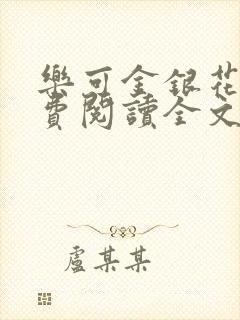 樂可金銀花
費閱讀全文
盧某某